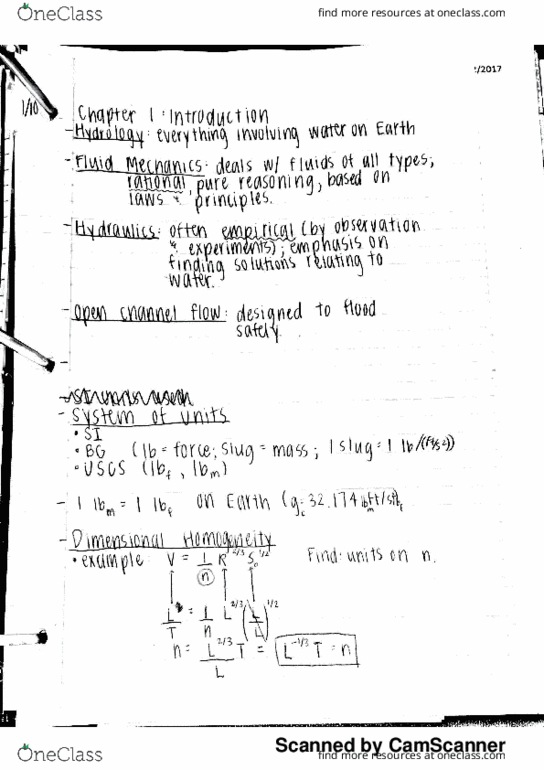 OneClass
find more resources at oneclass.com
/2017
1/10
Chapter 1: Introduction
- Hydrology: everything involving water on Earth
- Fluid Mechanics: deals w/ fluids of all types;
rational, pure reasoning, based on
laws & principles.
- Hydraulics: often empirical (by observation
& experiments); emphasis on
finding solutions relating to
water.
- Open channel flow: designed to flood
safely.
-
- System of units
• SI
• BG (lb = force; slug = mass; 1 slug = 1 lb/(ft/s2))
• USCS (lbf, lbm)
- 1 lbm = 1 lbf on Earth (gc = 32.174 lbmft/s2lbf
- Dimensional Homogeneity
• example V = 1/n R^2/3 So^1/2 Find: units on n.
L/T = 1/n L^2/3 (L/L)^1/2
n = L^2/3/L T = L^-1/3 T = n
Scanned by CamScanner
OneClass
find more resources at oneclass.com